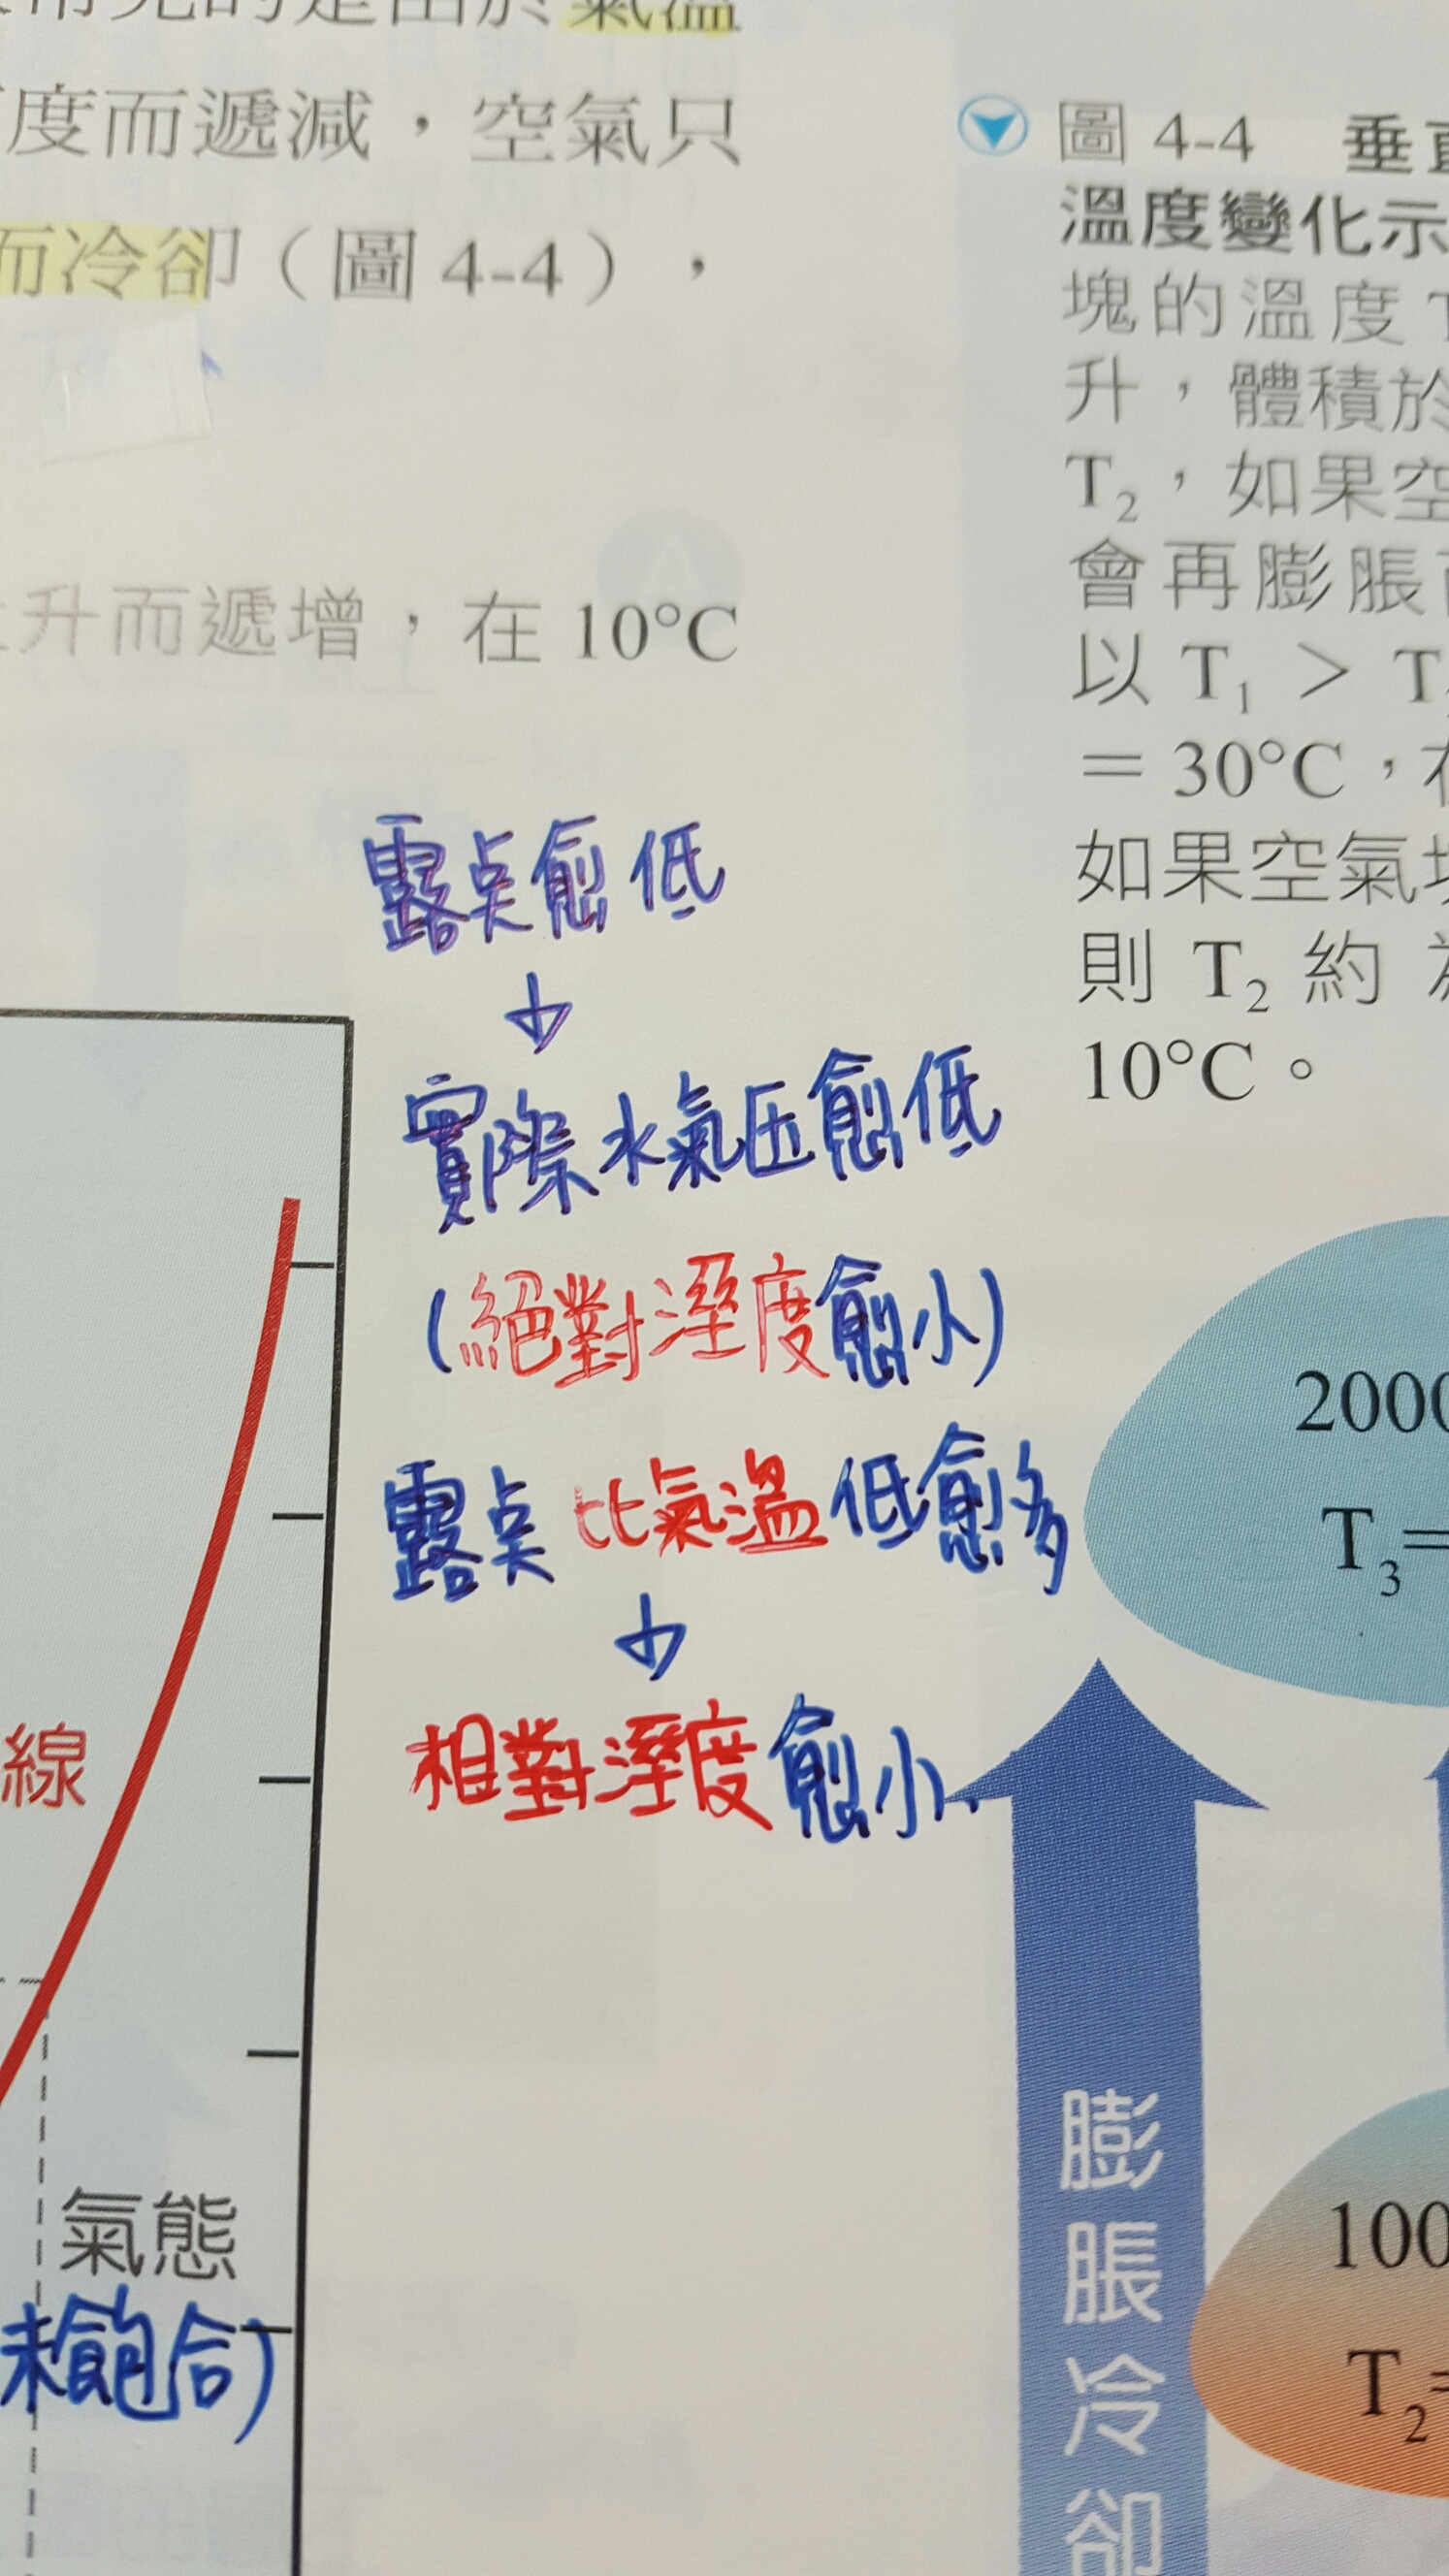 度而遞減，空氣只
而冷卻（圖 4-4），
升而遞增，在 10°C
露点愈低
↓
實際水氣压愈低
(絕對溼度愈小)
露点比氣溫低愈多
↓
相對溼度愈小.
線
氣態
未飽合)
圖 4-4 垂直
溫度變化示
塊的溫度 T
升，體積於
T₂，如果空
會再膨脹
以 T₁ > T
= 30°C，在
如果空氣塊
則 T₂ 約 為
10°C。
2000
T₃=
膨脹冷卻
100
T₂=